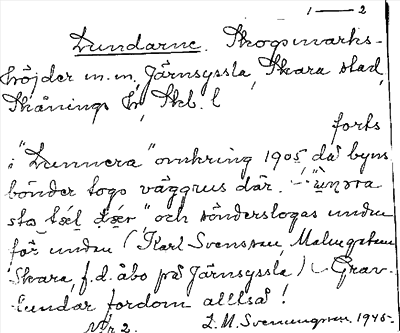 1 — 2
Lundarne. Skogsmarks-
höjder m.m, Järnsyssla, Skara stad,
Skånings h, Skb. l
forts
i "Lunnera" omkring 1905 då byns
bönder togo väggrus där.
och sönderslogas undan
för undan (Karl Svensson, Malmgatan
Skara, f.d. åbo på Järnsyssla) Grav-
lundar fordom alltså!
Nr 2. L.M. Svenungsson 1945-